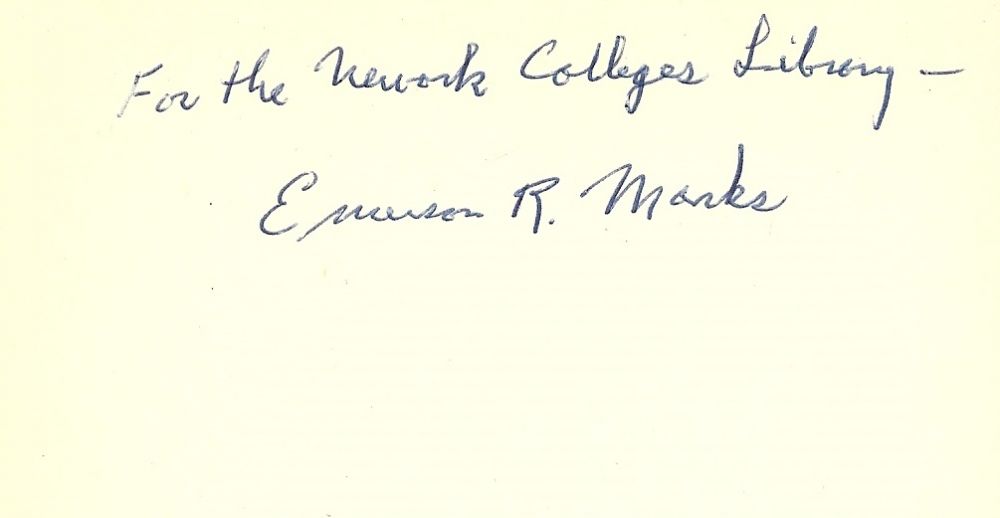 For the Newark Colleges Library —
Emerson R. Marks